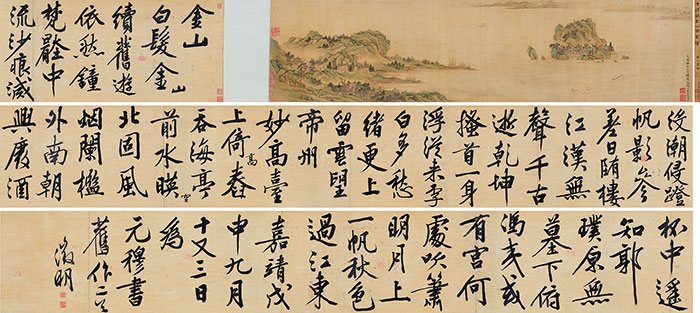 金山
白髮金山
續舊遊
依然鐘
梵壓中
流沙痕滅
沒潮侵蹬
帆影參
差日墮樓
江漢無
聲千古
逝乾坤
搔首一身
浮從來李
白多愁
緒更上
留雲望
帝州
妙高臺
上倚高舂
吞海亭
前水暎空
北固風
烟闌檻
外南朝
興廢酒
杯中遥
知郭
璞原無
墓下俯
馮夷或
有宮何
處吹簫
明月上
一帆秋色
過江東
嘉靖戊
申九月
十又三日
爲
元穆書
舊作二首
徵明